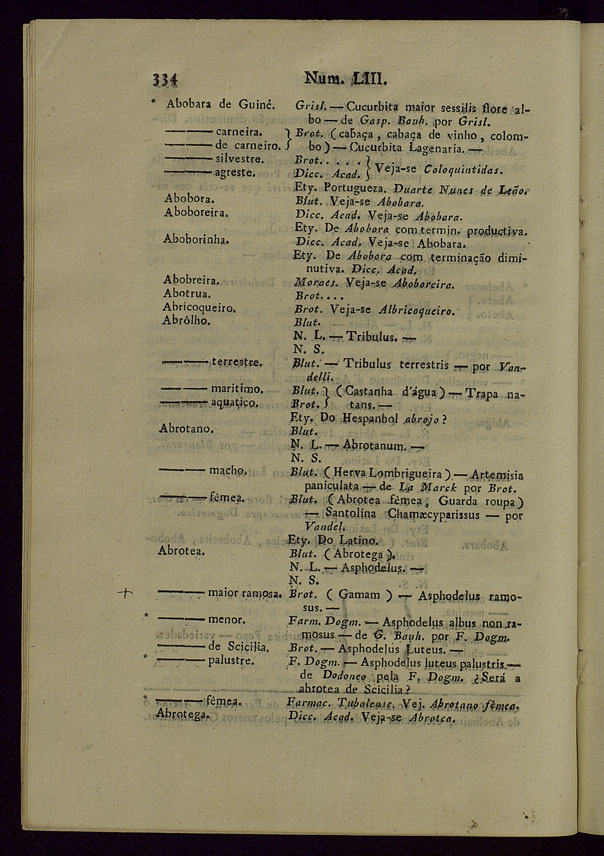 334 Num. LIII.
* Abobara de Guiné. Grisl. — Cucurbita maior sessilis flore al-
bo — de Gasp. Bauh. por Grisl.
——— carneira. } Brot. ( cabaça , cabaça de vinho , colom-
——— de carneiro. } bo ) — Cucurbita Lagenaria. —
——— silvestre. Brot. . . . . }
——— agreste. Dicc. Acad. } Veja-se Coloquintidas.
Ety. Portugueza. Duarte Nunes de Leão.
Abobora. Blut. Veja-se Abobara.
Aboboreira. Dicc. Acad. Veja-se Abobara.
Ety. De Abobora com termin. productiva.
Aboborinha. Dicc. Acad. Veja-se Abobara.
Ety. De Abobora com terminação dimi-
nutiva. Dicc. Acad.
Abobreira. Moraes. Veja-se Aboboreira.
Abotrua. Brot. . . .
Abricoqueiro. Brot. Veja-se Albricoqueiro.
Abrôlho. Blut.
N. L. — Tribulus. —
N. S.
——— terrestre. Blut. — Tribulus terrestris — por Van-
delli.
——— maritimo. Blut. } ( Castanha d'água ) — Trapa na-
——— aquatico. Brot. } tans. —
Ety. Do Hespanhol abrojo ?
Abrotano. Blut.
N. L. — Abrotanum. —
N. S.
——— macho. Blut. ( Herva Lombrigueira ) — Artemisia
paniculata — de La Marck por Brot.
——— fêmea. Blut. ( Abrotea fêmea , Guarda roupa )
— Santolina Chamæcyparissus — por
Vandel.
Ety. Do Latino.
Abrotea. Blut. ( Abrotega ).
N. L. — Asphodelus. —
N. S.
+ ——— maior ramosa. Brot. ( Gamam ) — Asphodelus ramo-
sus. —
* ——— menor. Farm. Dogm. — Asphodelus albus non ra-
mosus — de G. Bauh. por F. Dogm.
——— de Scicilia. Brot. — Asphodelus Luteus. —
* ——— palustre. F. Dogm. — Asphodelus luteus palustris —
de Dodoneo pela F. Dogm. ¿ Será a
abrotea de Scicilia ?
* ——— fêmea. Farmac. Tubalense. Vej. Abrotano fêmea.
Abrotega. Dicc. Acad. Veja-se Abrotea.